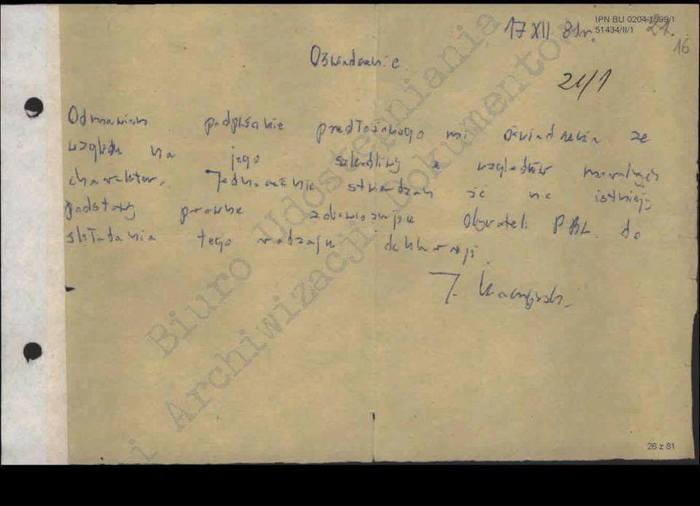 IPN BU 0204/1599/1
51434/II/1
17 XII 81r.
21.
16
Oświadczenie
21/1
Odmawiam podpisania przedłożonego mi oświadczenia ze
względu na jego szkodliwy z względów moralnych
charakter. Jednocześnie stwierdzam że nie istnieją
podstawy prawne zobowiązujące Obywateli PRL do
składania tego rodzaju deklaracji.
J. Kaczyński
Biuro Udostępniania
i Archiwizacji Dokumentów
26 z 81